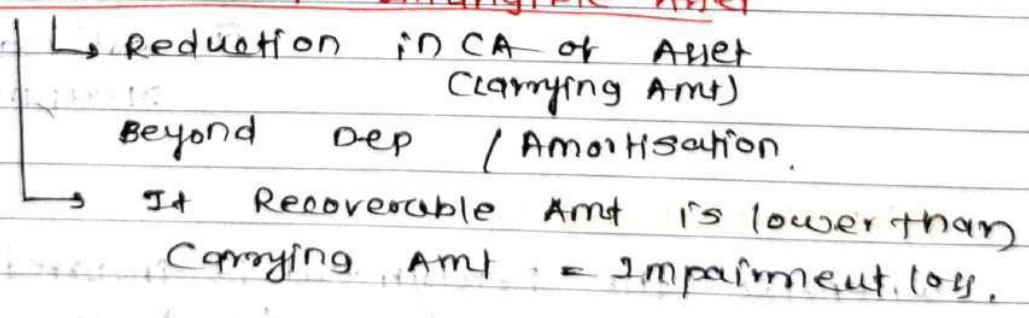 Intangible Asset
↳ Reduction in CA of Asset
(Carrying Amt)
Beyond Dep / Amortisation.
→ If Recoverable Amt is lower than
Carrying Amt = Impairment loss.